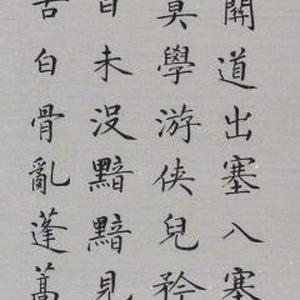 關道出塞入塞
莫學游俠兒矜
日未没黯黯見
古白骨亂蓬蒿